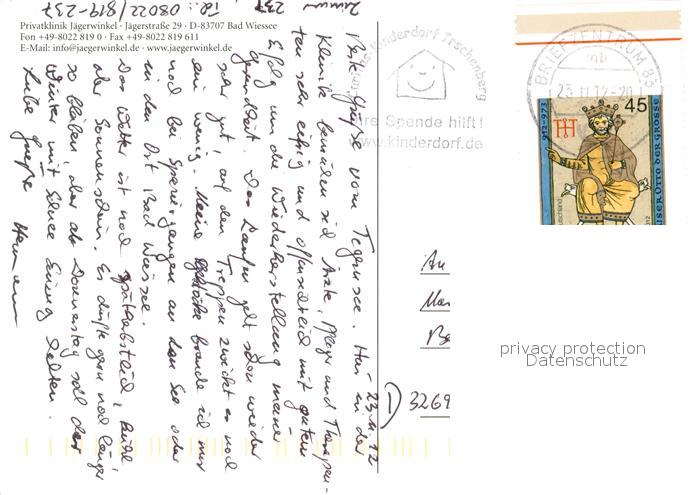 Zimmer 237
Tel. 08022/819-237
Privatklinik Jägerwinkel · Jägerstraße 29 · D-83707 Bad Wiessee
Fon +49-8022 819 0 · Fax +49-8022 819 611
E-Mail: info@jaegerwinkel.de · www.jaegerwinkel.de
23.11.12
Grüße vom Tegernsee. Hier in der
Klinik bemühen sich Ärzte, Pfleger und Therapeu-
ten sehr eifrig und offensichtlich mit gutem
Erfolg um die Wiederherstellung meiner
Gesundheit. Das Laufen geht schon wieder
sehr gut, auf den Treppen zwickt es noch
ein wenig. Meine brauche ich nur
noch bei Spaziergängen an den See oder
in den Ort Bad Wiessee.
Das Wetter ist noch spätherbstlich,
der Sonnenschein. Es dürfte gern noch länger
so bleiben, aber ab Donnerstag soll der
Winter mit Schnee Einzug halten.
Liebe Grüße Hermann
Kinderdorf Irschenberg
Ihre Spende hilft!
www.kinderdorf.de
BRIEFZENTRUM 83
mb
23.11.12-20
45
912-973
KAISER OTTO DER GROSSE
Deutschland
An
D 3269
privacy protection
Datenschutz